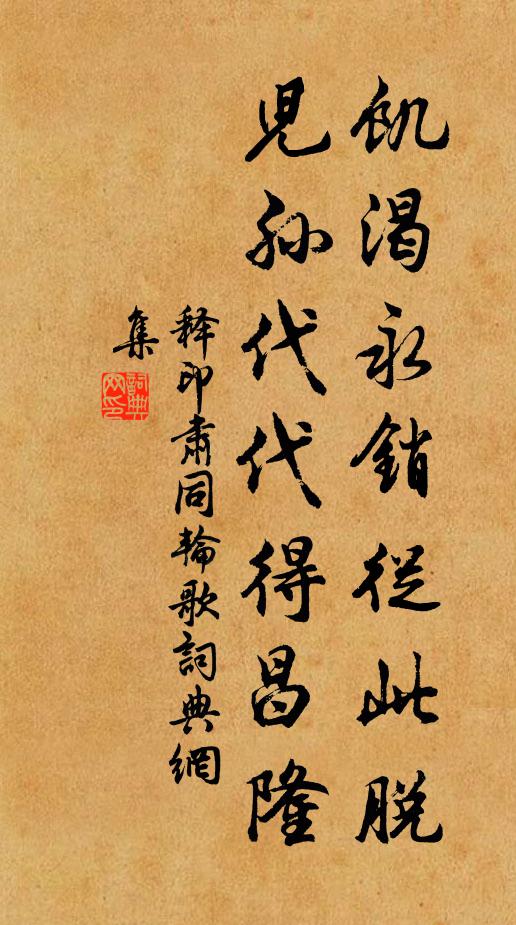 飢渴永銷從此脫
兒孫代代得昌隆
释印肅同輪歌詞典網
集
詞典網印